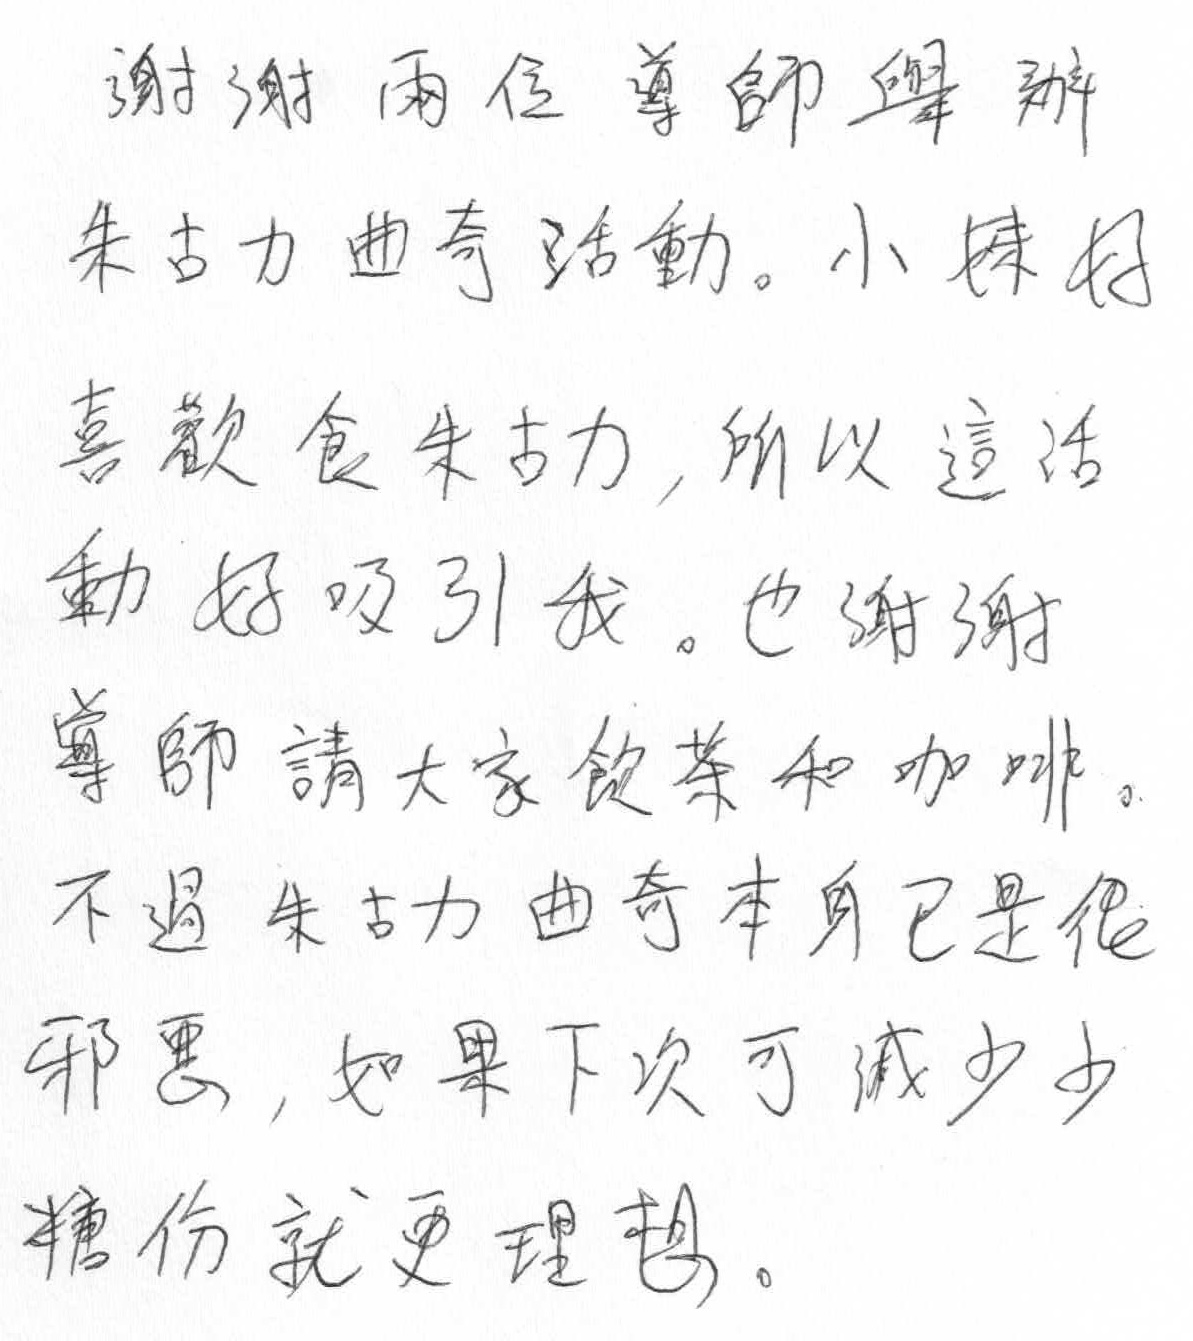 謝謝兩位導師舉辦
朱古力曲奇活動。小妹好
喜歡食朱古力,所以這活
動好吸引我。也謝謝
導師請大家飲茶和咖啡。
不過朱古力曲奇本身已是很
邪惡,如果下次可減少少
糖份就更理想。